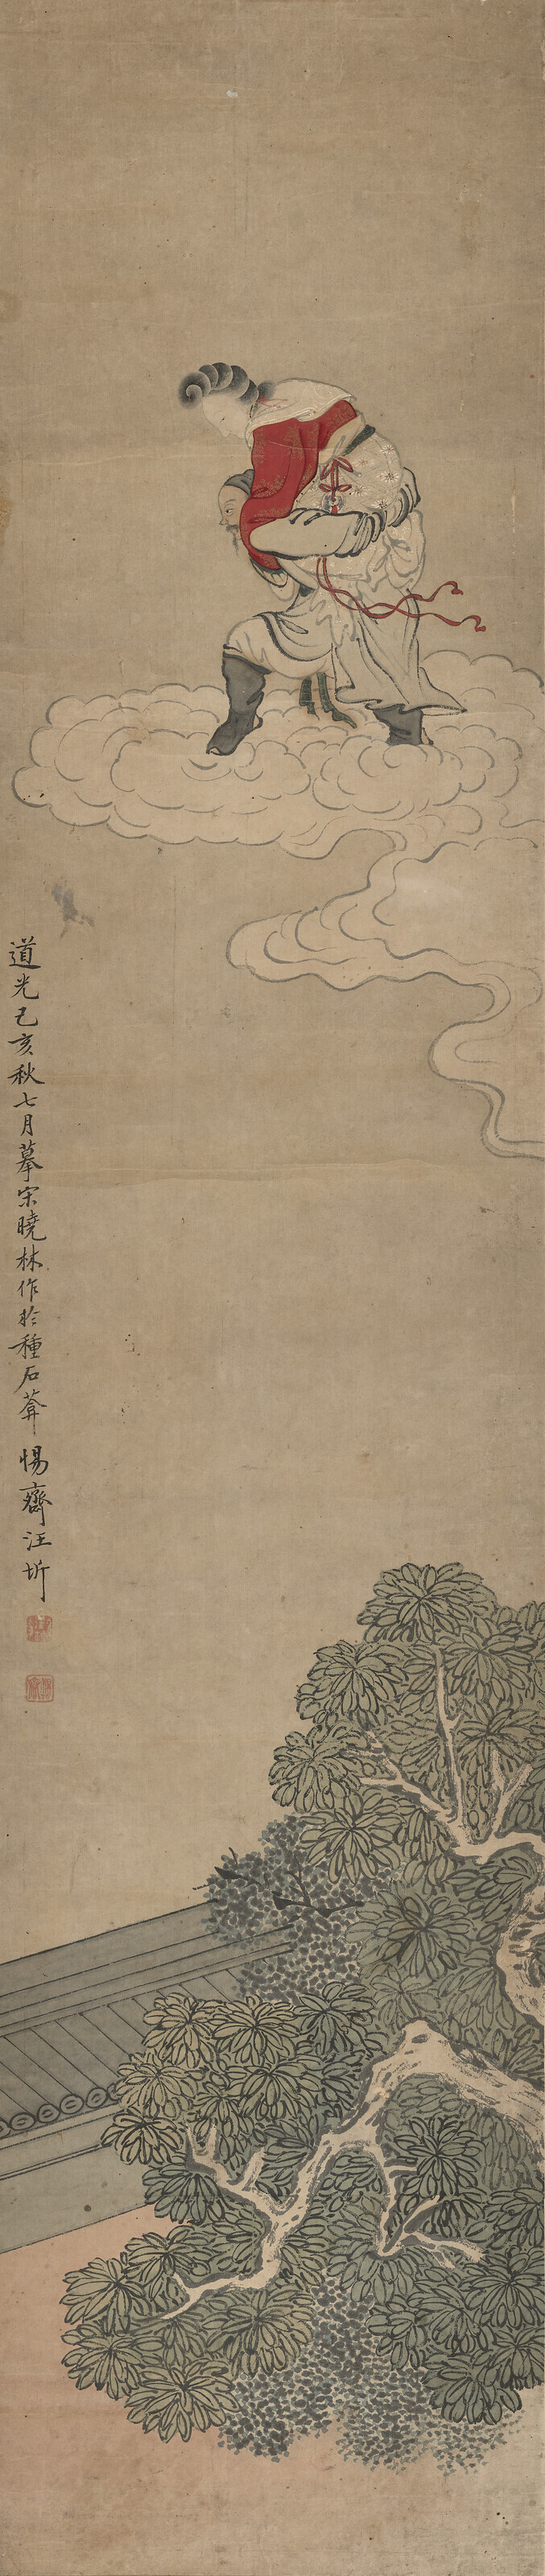 道光己亥秋七月摹宋曉林作於種石葊 惕齋汪圻